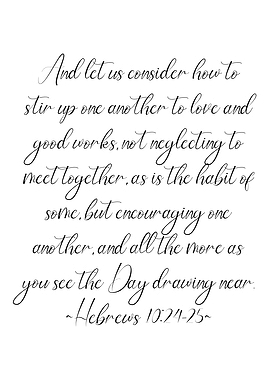 And let us consider how to
stir up one another to love and
good works, not neglecting to
meet together, as is the habit of
some, but encouraging one
another, and all the more as
you see the Day drawing near.
~Hebrews 10:24-25~